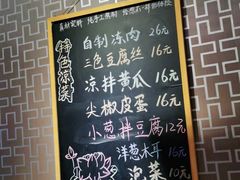 真材实料 纯手工熬制 给您不一样的体验
特色凉菜
自制冻肉 26元
三色豆腐丝 16元
凉拌黄瓜 16元
尖椒皮蛋 16元
小葱拌豆腐 12元
洋葱木耳 16元
泡菜 10元